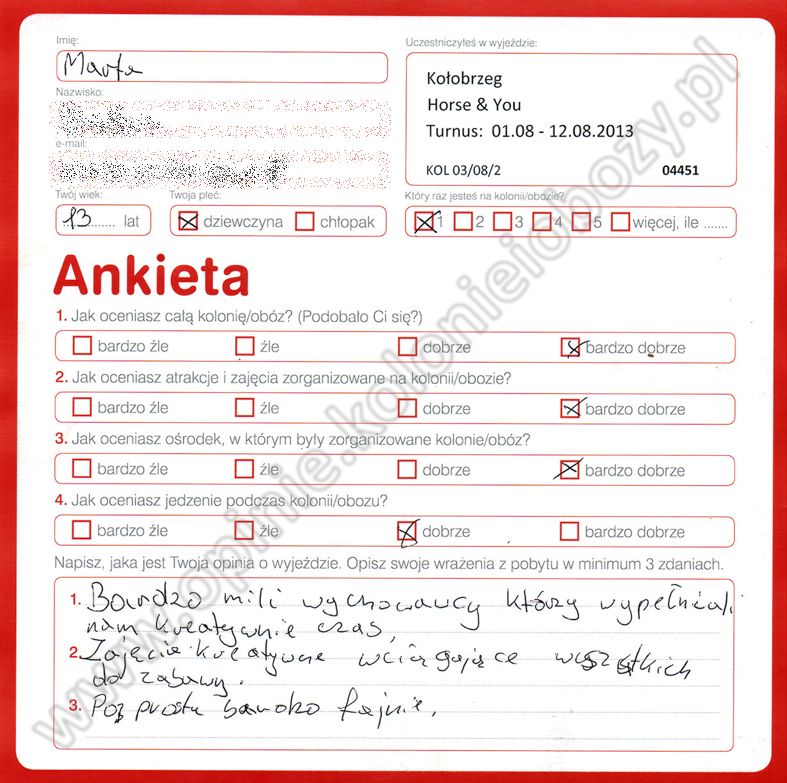 Imię:
Marta
Nazwisko:
e-mail:
Twój wiek:
13 lat
Twoja płeć:
dziewczyna chłopak
Uczestniczyłeś w wyjeździe:
Kołobrzeg
Horse & You
Turnus: 01.08 - 12.08.2013
KOL 03/08/2 04451
Który raz jesteś na kolonii/obozie?
1 2 3 4 5 więcej, ile .......
Ankieta
1. Jak oceniasz całą kolonię/obóz? (Podobało Ci się?)
bardzo źle źle dobrze bardzo dobrze
2. Jak oceniasz atrakcje i zajęcia zorganizowane na kolonii/obozie?
bardzo źle źle dobrze bardzo dobrze
3. Jak oceniasz ośrodek, w którym były zorganizowane kolonie/obóz?
bardzo źle źle dobrze bardzo dobrze
4. Jak oceniasz jedzenie podczas kolonii/obozu?
bardzo źle źle dobrze bardzo dobrze
Napisz, jaka jest Twoja opinia o wyjeździe. Opisz swoje wrażenia z pobytu w minimum 3 zdaniach.
1. Bardzo mili wychowawcy którzy wypełniali
nam kreatywnie czas,
2. Zajęcia kreatywne wciągające wszystkich
do zabawy.
3. Po prostu bardzo fajnie.
www.opinie.kolonieiobozy.pl